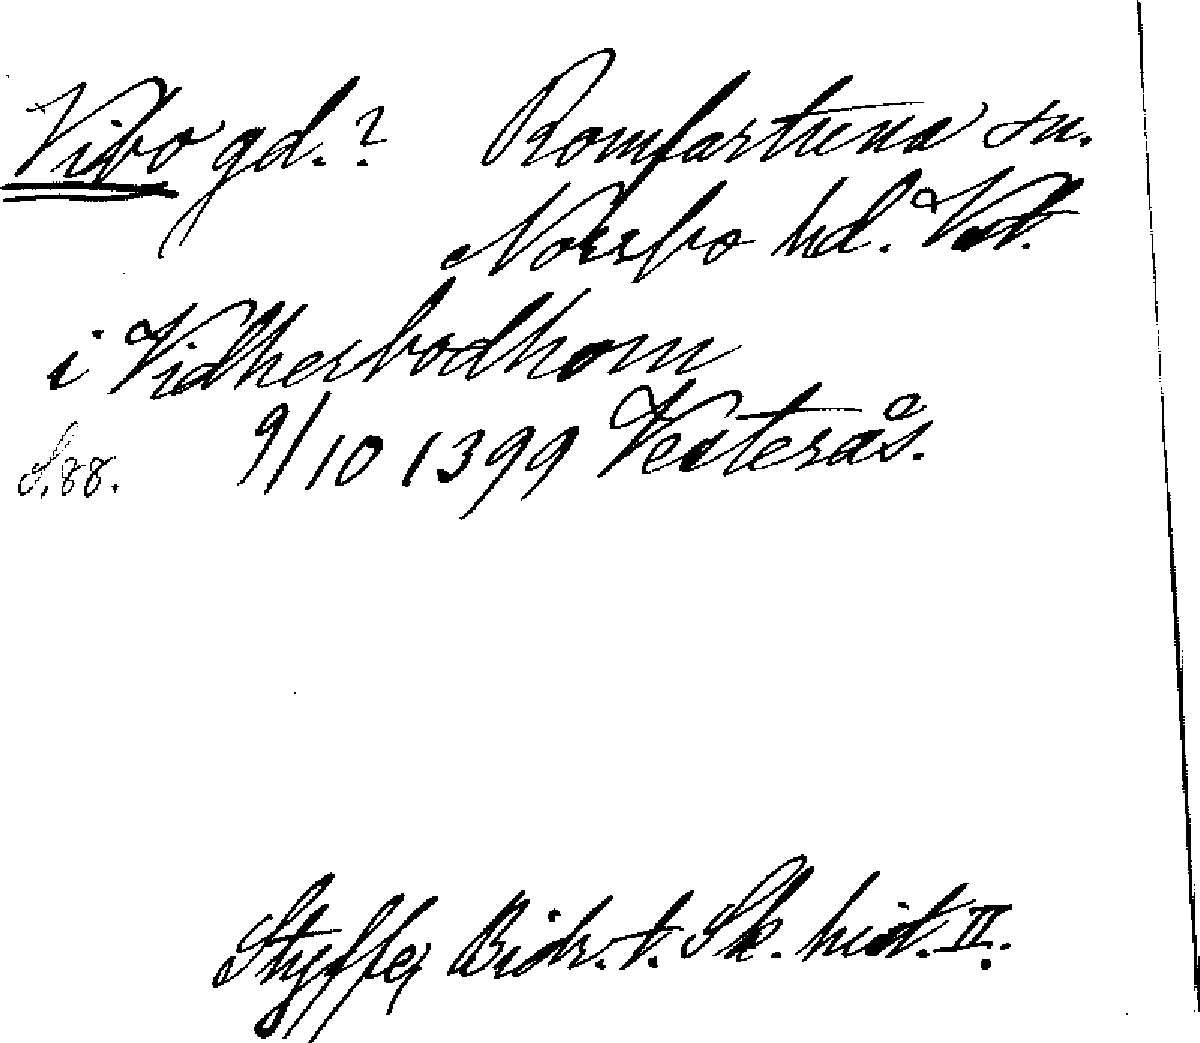 Vibo gd.? Romfartuna sn.
Norrbo hd. Vstl.
i Vidherbodhom
S. 88. 9/10 1399 Vesterås.
Styffe, Bidr. t. Sk. hist. II.